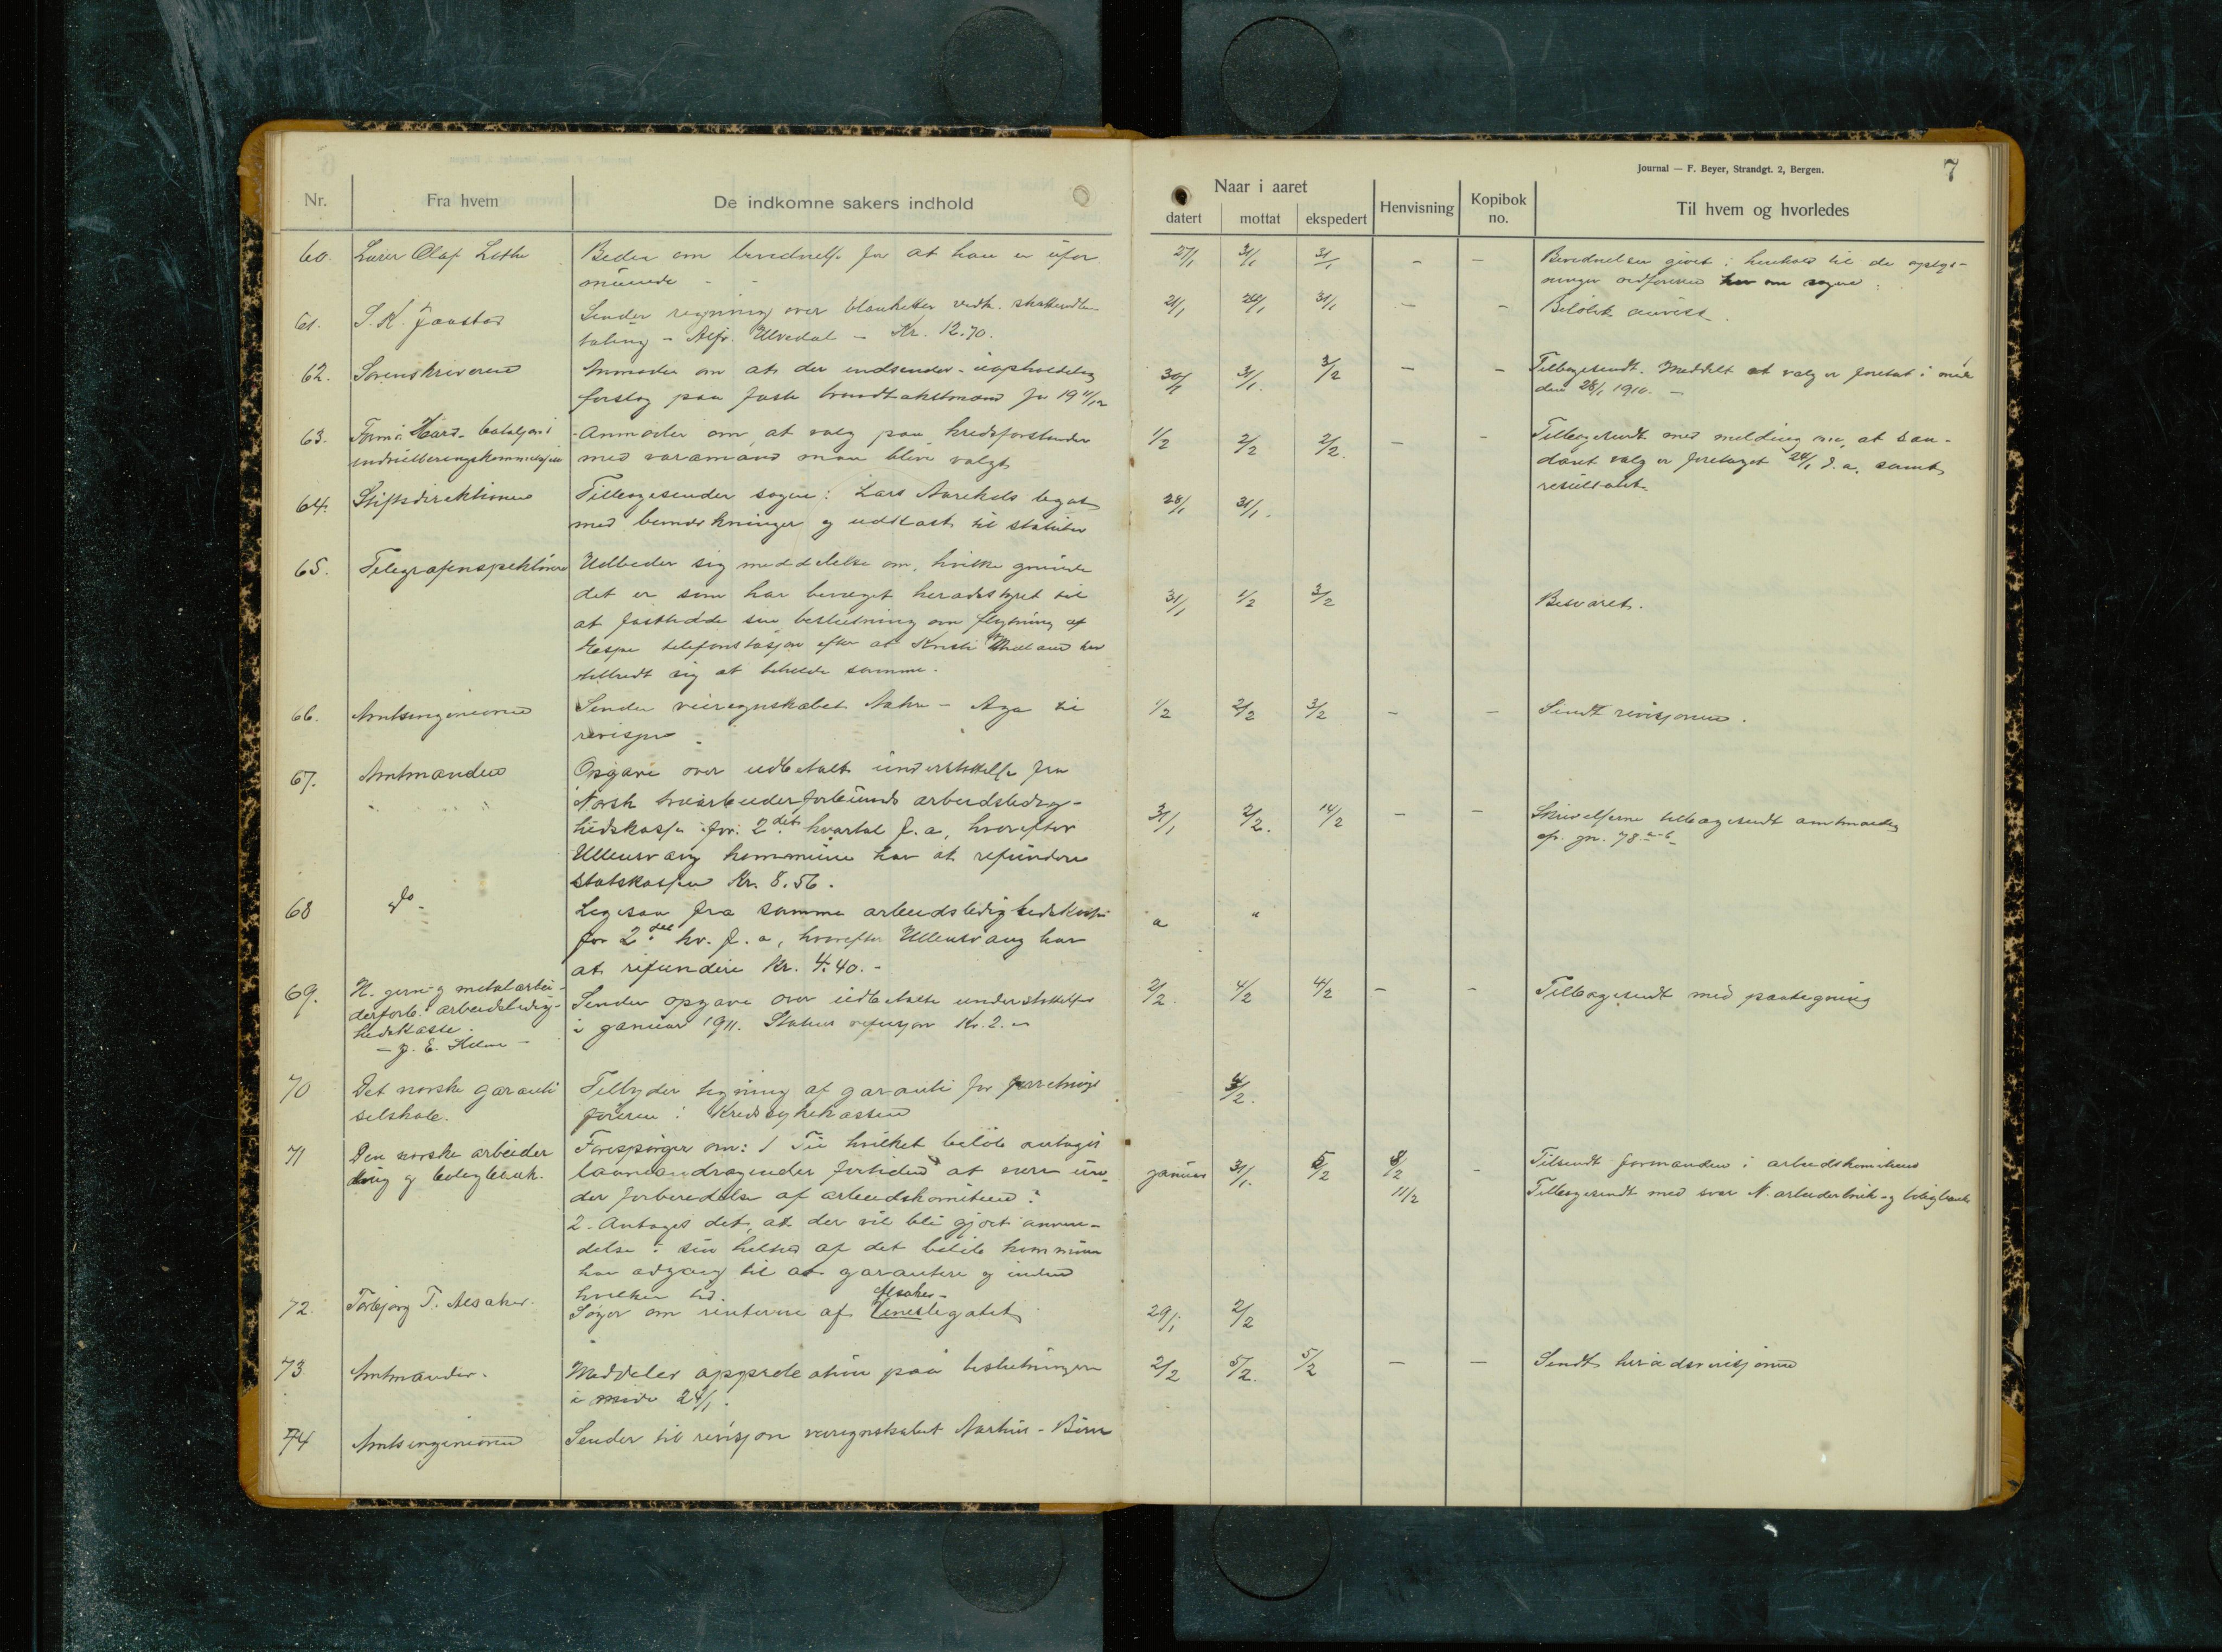 Journal — F. Beyer, Strandgt. 2, Bergen.
7
Nr.
Fra hvem
De indkomne sakers indhold
Naar i aaret
datert
mottat
ekspedert
Henvisning
Kopibok no.
Til hvem og hvorledes
60. Lærer Olaf Lothe Beder om bevidnelse for at han er ufor
muende - - 27/1 31/1 31/1 - -
Bevidnelsen givet i henhold til de oplys-
ninger ordføreren har om sagen.
61. S. K. Jaastad Sender regning over blanketter vedk. skatteudlin
taling - Alfr. Ulvedal - Kr. 12.70. 21/1 31/1 - - Beløbet anvist.
62. Sorenskriveren Anmoder om at der indsender - uopholdelig
forslag paa faste 19 11/12 30/1 31/1. 3/2 - -
Tilbagesendt. Meddelt at valg er foretat i møte
den 28/1 1910. -
63. Hard. bataljons Anmoder om, at valg paa kredsforstander
med varamand maa blive valgt 1/2 2/2 2/2. - -
Tilbagesendt med melding om, at saa-
dant valg er foretaget 24/1 d.a. samt
resultatet.
64. Stiftsdirektionen Tilbagesender sagen: Lars legat
med bemerkninger og udkast til statuter 28/1 31/1.
65. Telegrafinspektøren Udbeder sig meddelelse om, hvilke grunde
det er som har bevæget heradsstyret til
at fastholde sin beslutning om flytning af
Espe telefonstasjon efter at Kristi har
tilbudt sig at beholde samme. 31/1 1/2 3/2 Besvaret.
66. Amtsingeniøren Sender veiregnskabet - Aga til
revisjon. 1/2 2/2 3/2 - - Sendt revisjonen.
67. Amtmanden Opgave over udbetalt understøttelse fra
Norsk forbunds arbeidsledig-
hedskasse for 2det kvartal f.a, hvorefter
Ullensvang kommune har at refundere
statskassen Kr. 8.56. 31/1 2/2. 14/2 - -
Skrivelserne tilbagesendt amtmanden
78 a-b
68 do - Ligesaa fra samme arbeidsledighedskasse
for 2det kv. f.a, hvorefter Ullensvang har
at refundere Kr. 4.40. -
69. N. jern- og metalarbei-
derforb. arbeidsledig-
hedskasse.
Sender opgave over udbetalte understøttelse
i januar 1911. Statens refusjon Kr. 2. - 2/2. 4/2 4/2 - -
Tilbagesendt med paategning
70 Det norske garanti
selskab. Tilbyder tegning af garanti for forretnings
føreren i Kredssykekassen 4/2.
71 Den norske arbeider
brug og boligbank. Forespørger om: 1 Til hvilket beløb antages
laaneandragender fortiden at være un-
der forberedelse af arbeidskomiteen?
2. Antages det, at der vil bli gjort anven-
delse i sin helhed af det beløb kommunen
har adgang til at garantere og inden
hvilken tid. januar 31/1. 5/2 8/2 -
Tilsendt formanden i arbeidskomiteen
11/2 Tilbagesendt med svar N. arbeiderbruk og boligbank
72. Torbjørg T. Aesaker. Søger om renterne af legatet 29/1 2/2
73 Amtmanden. Meddeler approbation paa beslutningen
i møde 24/1. 2/2 5/2. 5/2 - - Sendt heradsrevisjonen
74 Amtsingeniøren Sender til revisjon veiregnskabet